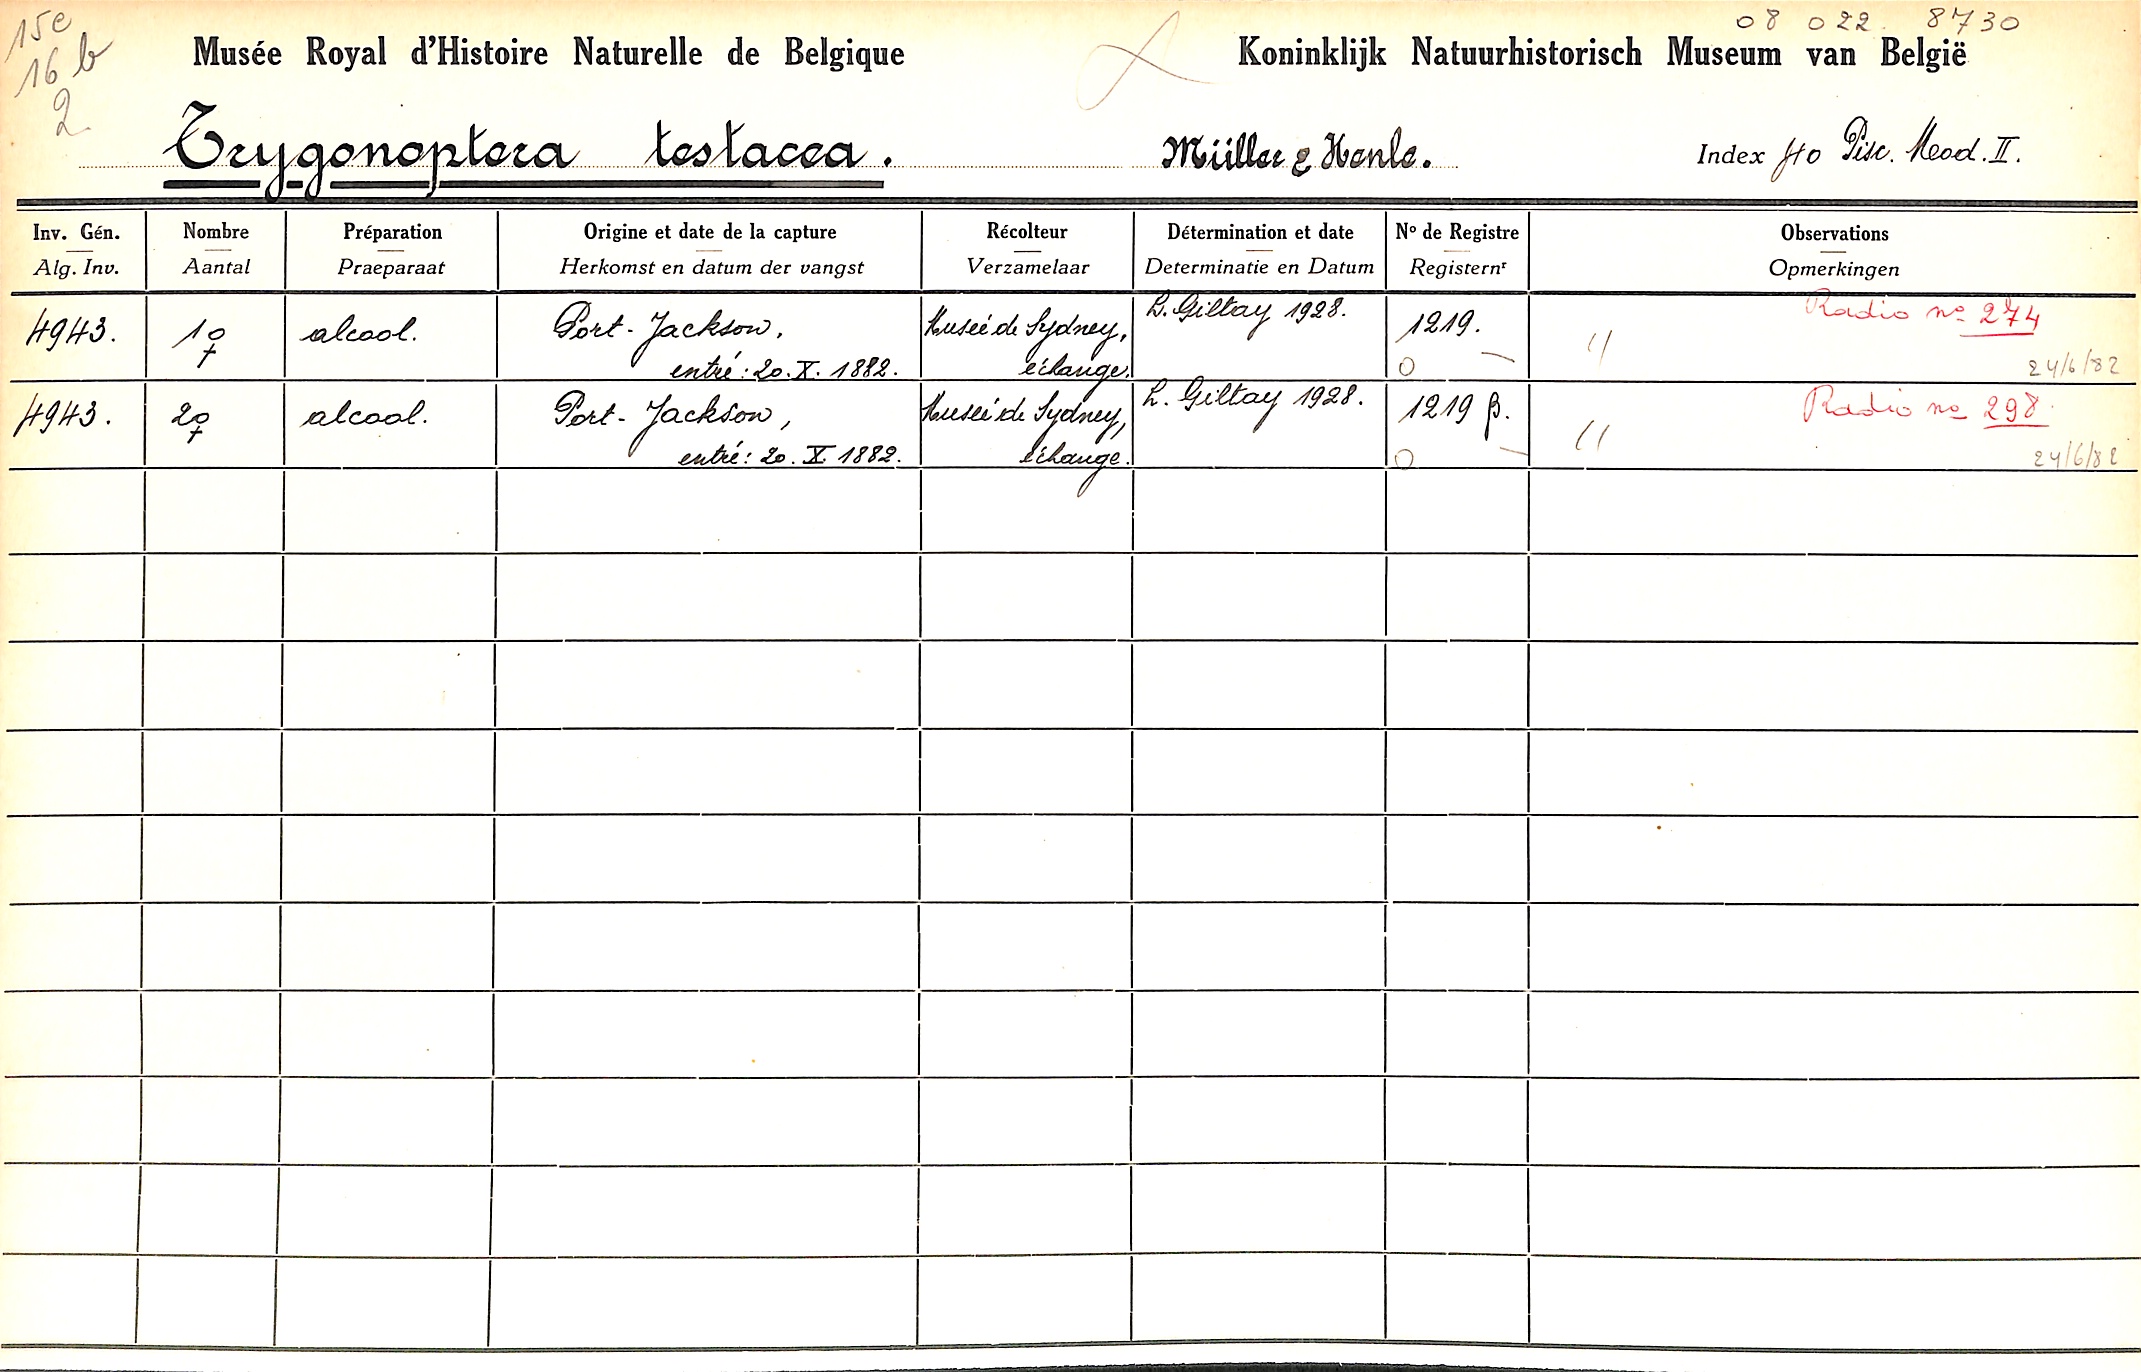 15c
16 b
2
08 022 8730
Musée Royal d'Histoire Naturelle de Belgique
Koninklijk Natuurhistorisch Museum van België
Trygonoptera testacea.
Müller & Henle.
Index 40 Pisc. Mod. II.
Inv. Gén. Nombre Préparation Origine et date de la capture Récolteur Détermination et date No de Registre Observations
Alg. Inv. Aantal Praeparaat Herkomst en datum der vangst Verzamelaar Determinatie en Datum Registernr Opmerkingen
4943. 1♀ alcool. Port-Jackson, Musée de Sydney, L. Giltay 1928. 1219. Radio no 274
entré: 20.X.1882. échange. 0 – 24/6/82
4943. 2♀ alcool. Port-Jackson, Musée de Sydney, L. Giltay 1928. 1219 β. Radio no 298
entré: 20.X.1882. échange. 0 – 24/6/82